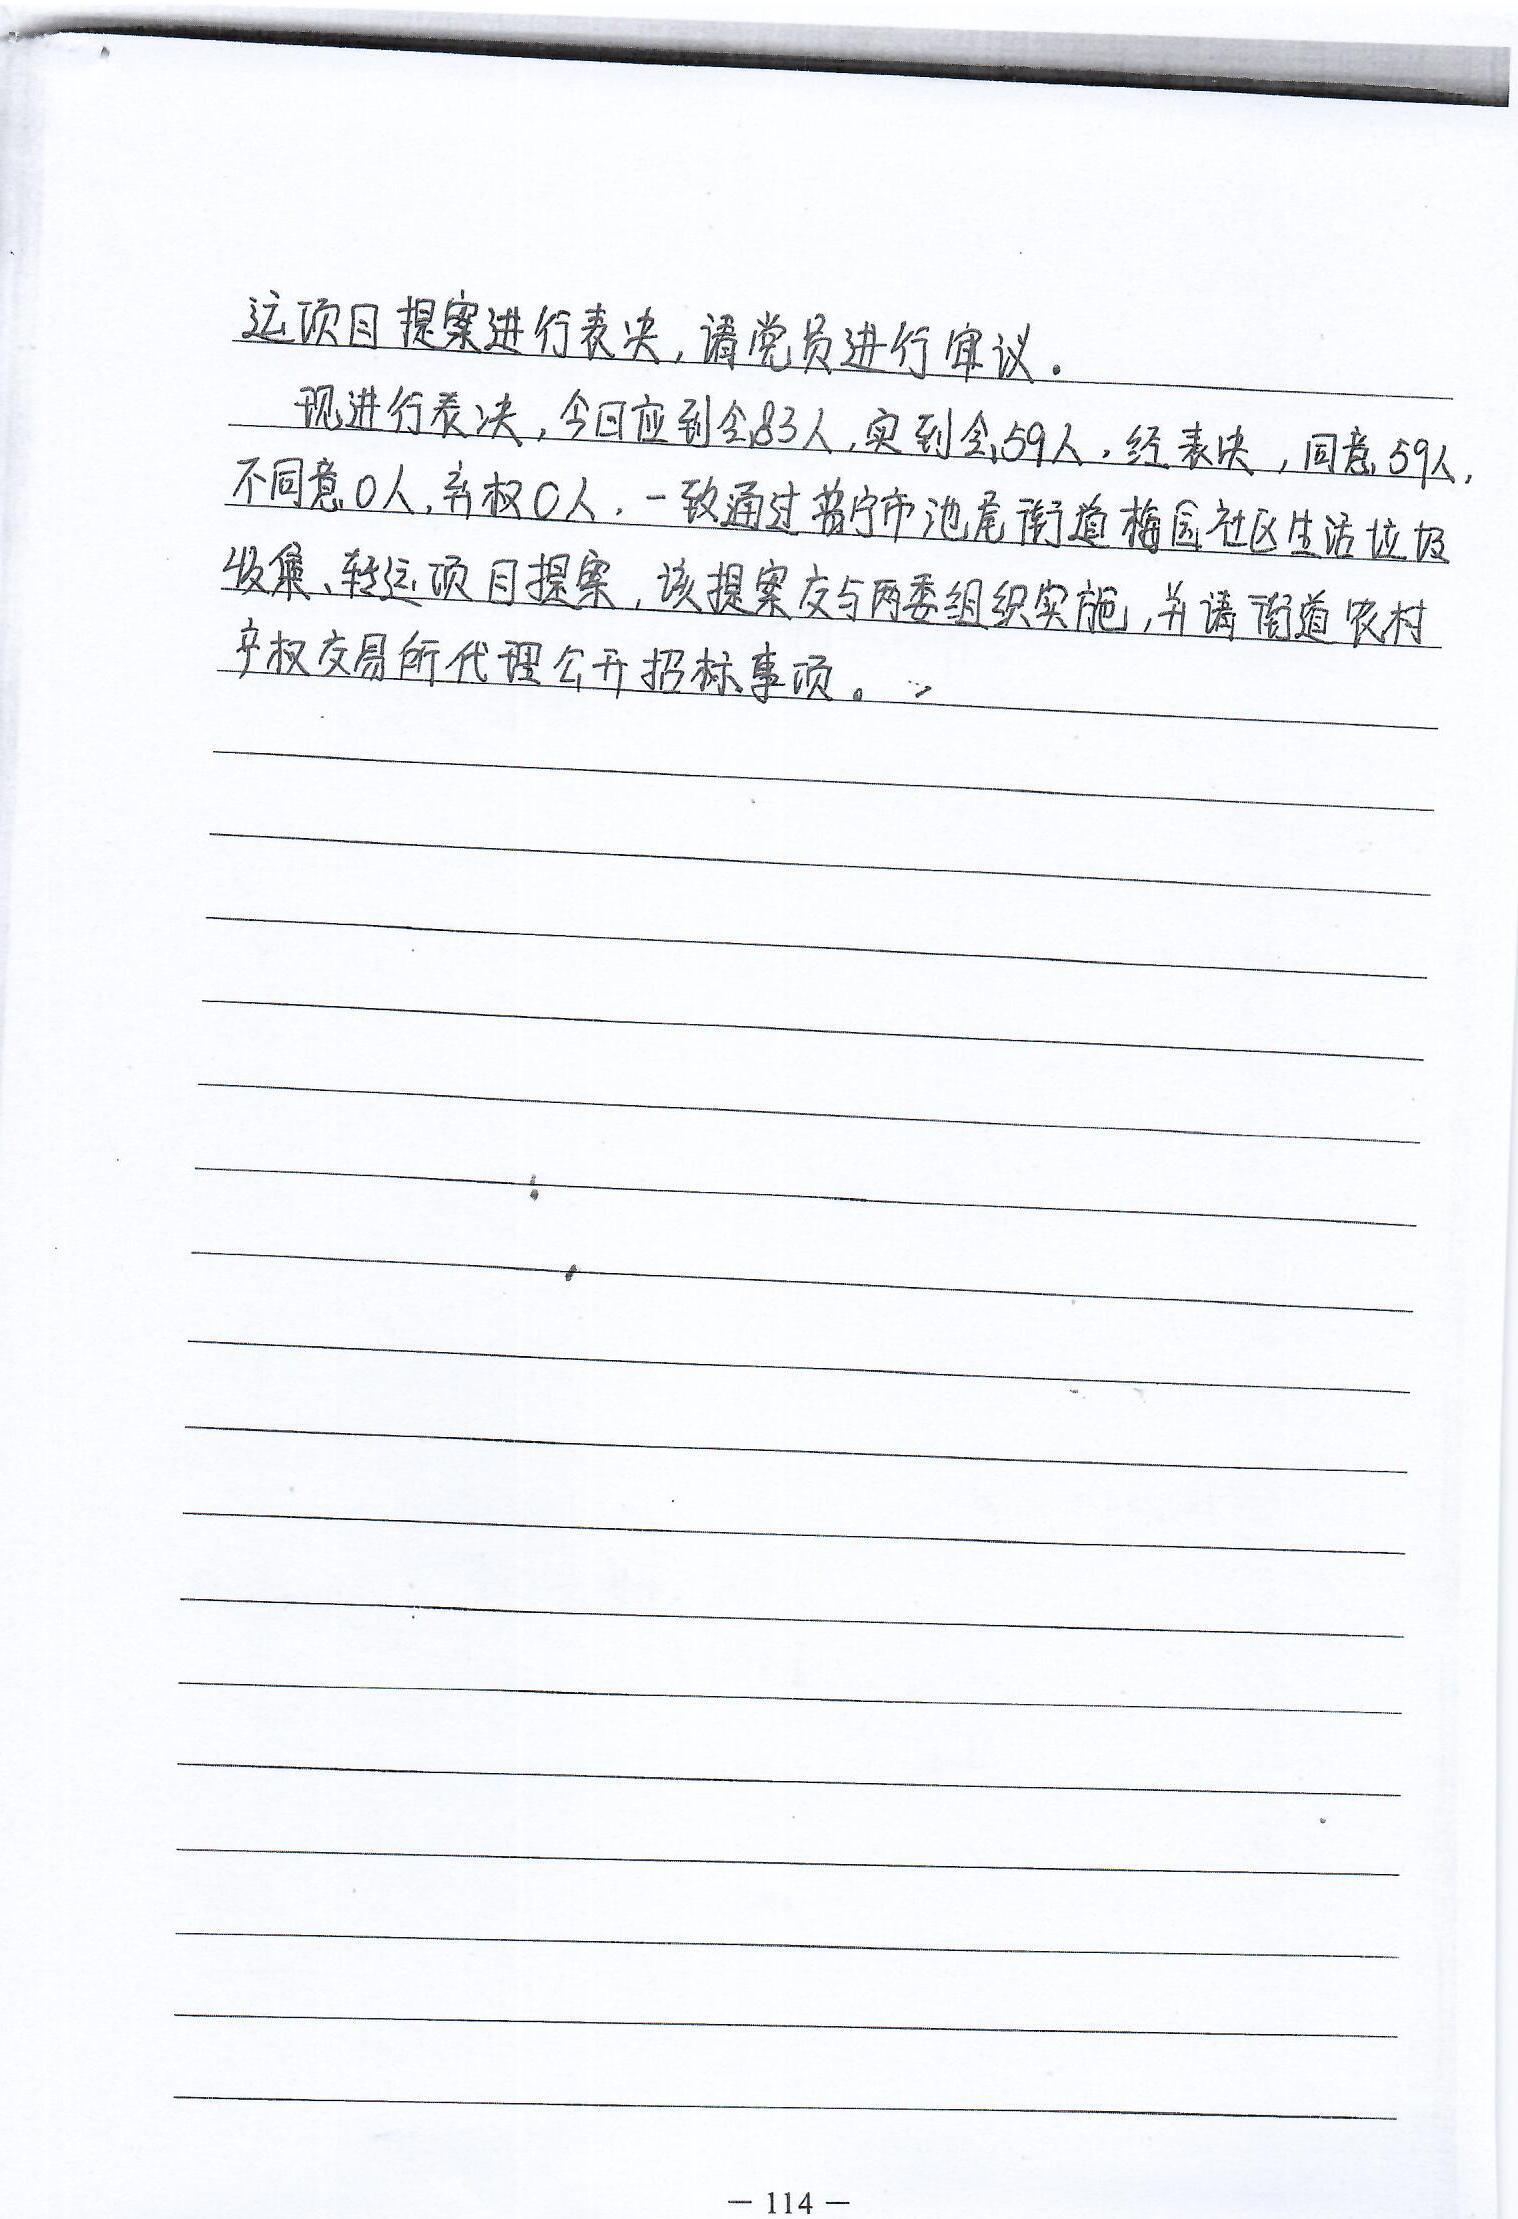 运项目提案进行表决,请党员进行审议.
现进行表决,今日应到会83人,实到会59人.经表决,同意59人,
不同意0人,弃权0人.一致通过普宁市池尾街道梅园社区生活垃圾
收集、转运项目提案,该提案交与两委组织实施,并请街道农村
产权交易所代理公开招标事项。
— 114 —